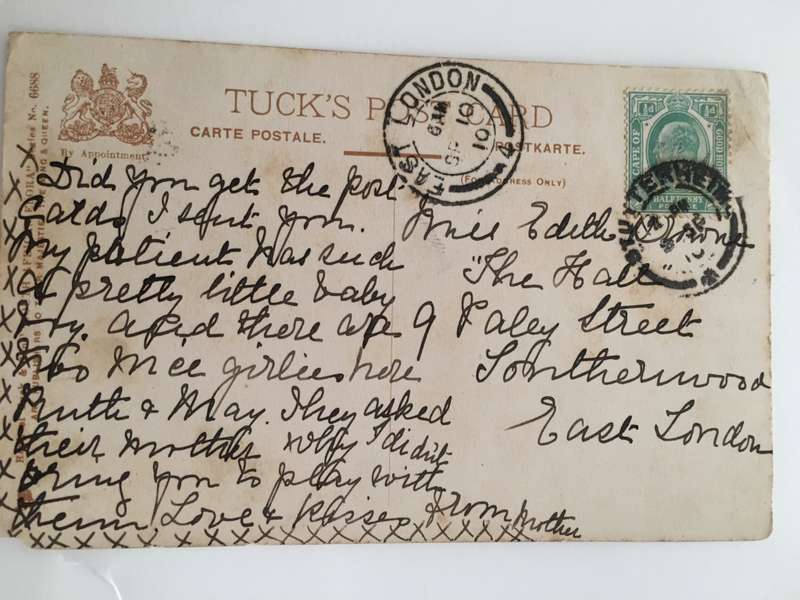 TUCK'S POST CARD
CARTE POSTALE.
POSTKARTE.
By Appointment.
(FOR ADDRESS ONLY)
6688
KING & QUEEN.
EAST LONDON
STUTTERHEIM
CAPE OF GOOD HOPE
½d ½d
HALFPENNY
POSTAGE
Did you get the post
Cards I sent you.
My patient has such
a pretty little baby
boy. and there are
two nice girlies here
Ruth & May. They asked
their mother why I didnt
bring you to play with
them Love & Kisses from Mother
Miss Edith
"The Hall
9 Paley Street
Southernwood
East London